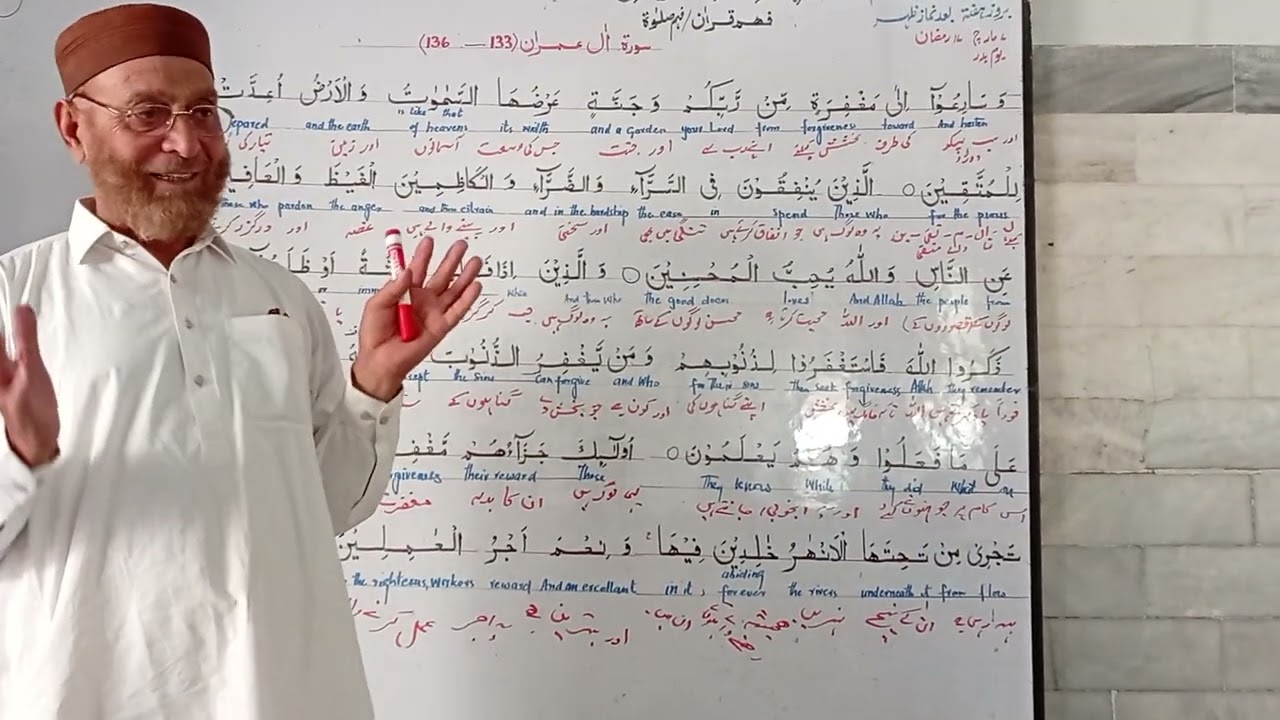 فہم قرآن/فہم صلوٰۃ
بروز ہفتہ بعد نماز ظہر
سورۃ اٰل عمران (133 — 136)
۷ مارچ ۱۷ رمضان
یوم بدر
وَ سَارِعُوْٓا اِلٰى مَغْفِرَةٍ مِّنْ رَّبِّكُمْ وَ جَنَّةٍ عَرْضُهَا السَّمٰوٰتُ وَ الْاَرْضُ اُعِدَّتْ
is like that
epared and the earth of heavens its width and a Garden your Lord from forgiveness toward And hasten
کی طرف بخشش اپنے رب سے اور جنت جس کی وسعت آسمانوں اور زمین تیار کی
لِلْمُتَّقِيْنَ ○ الَّذِيْنَ يُنْفِقُوْنَ فِى السَّرَّآءِ وَالضَّرَّآءِ وَ الْكَاظِمِيْنَ الْغَيْظَ وَ الْعَافِي
those who pardon the anger and in the hardship the ease in spend Those who for the pious
یہ وہ لوگ ہیں جو انفاق کرتے ہیں تنگی میں بھی اور سختی اور پینے والے ہیں غصہ اور درگزر کر
عَنِ النَّاسِ وَاللّٰهُ يُحِبُّ الْمُحْسِنِيْنَ ○ وَ الَّذِيْنَ اِذَا فَ ةً اَوْ ظَلَمُ
when And those who the good doers loves And Allah the people from
لوگوں کے قصوروں کے) اور اللہ محبت کرتا ہے محسن لوگوں کے ساتھ یہ وہ لوگ ہیں جب یا
ذَكَرُوا اللّٰهَ فَاسْتَغْفَرُوْا لِذُنُوْبِهِمْ وَ مَنْ يَّغْفِرُ الذُّنُوْبَ
cept the sins can forgive and who for their sins then seek forgiveness Allah they remember
اپنے گناہوں کی اور کون ہے جو بخش دے گناہوں کے
عَلٰى مَا فَعَلُوْا وَ هُمْ يَعْلَمُوْنَ ○ اُولٰٓئِكَ جَزَآءُهُمْ مَّغْفِ
rgiveness their reward Those They know While they did What on
اس کام پر جو انہوں نے کئے اور وہ بخوبی جانتے ہیں یہی لوگ ہیں ان کا بدلہ مغفرت
تَجْرِىْ مِنْ تَحْتِهَا الْاَنْهٰرُ خٰلِدِيْنَ فِيْهَا ۚ وَ نِعْمَ اَجْرُ الْعٰمِلِيْنَ
abiding
the righteous, workers reward And an excellant in it, forever the rivers underneath it from flow
ان کے نیچے نہریں ہمیشہ اور بہترین ہے یہ اجر عمل کرنے